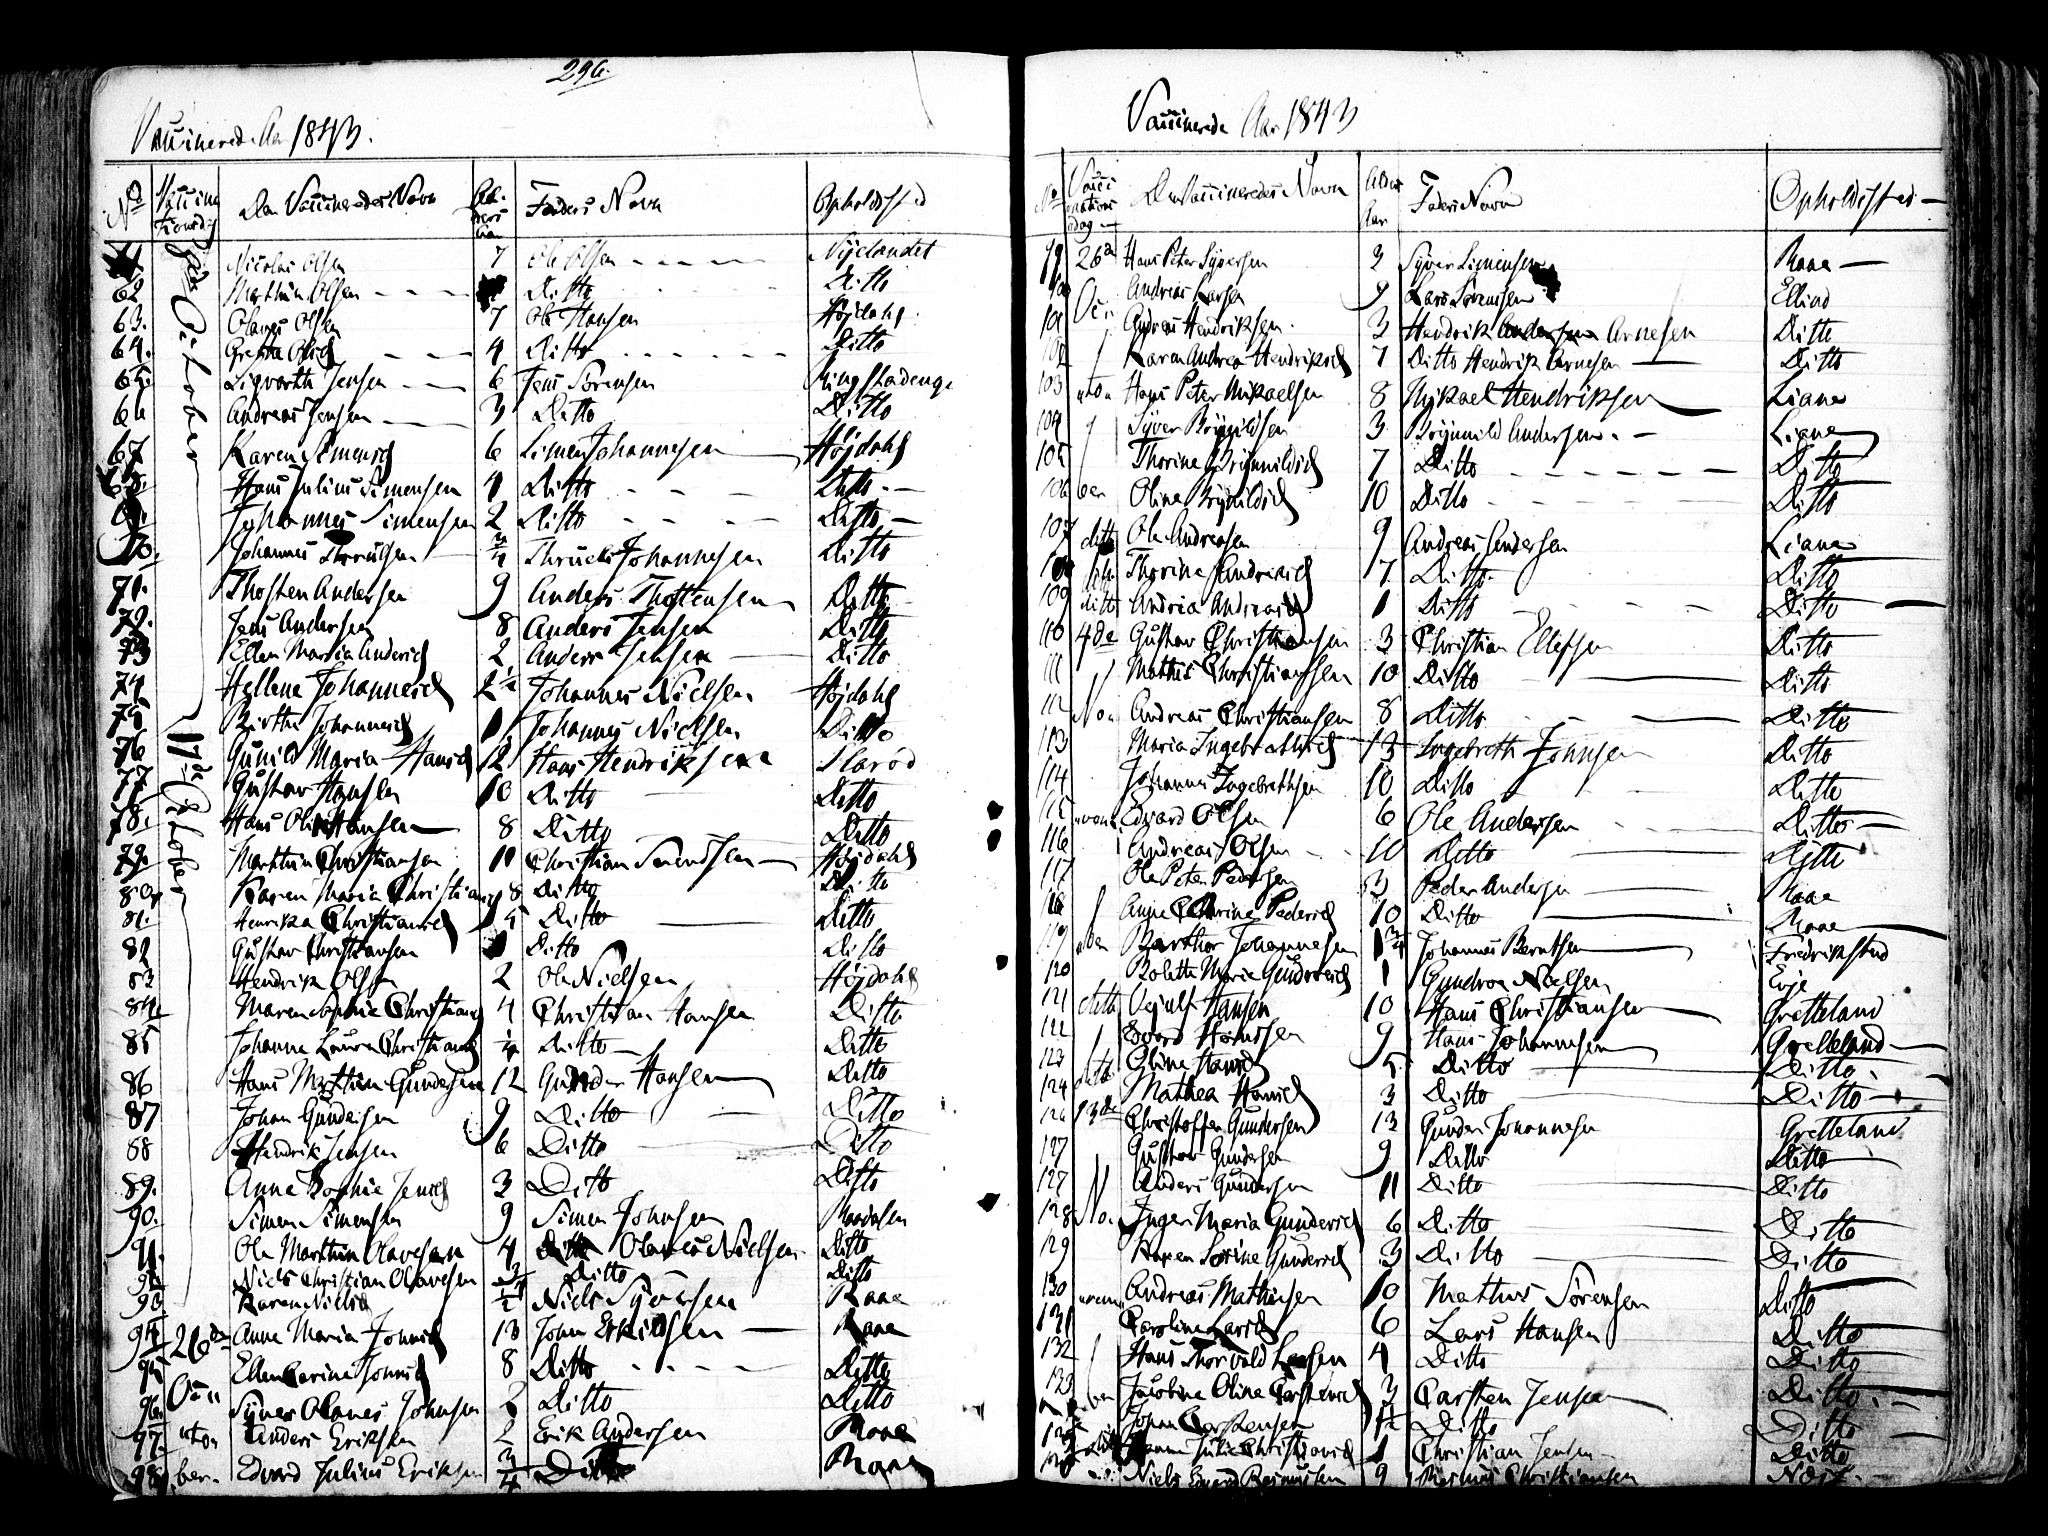 296.
Vaccinerede Aar 1843.
No Den Vaccineredes Navn Faders Navn Opholdssted
Nicolai Olsen 7 Ole Olsen Nyelandet
62 Marthin Olsen Ditto Ditto
63. Olaves Olsen 7 Ole Hansen Højdahl
64. Grethe Olsd 4 Ditto Ditto
65. Sigvarth Jensen 6 Jens Sørensen Ringstadenge
66 Andreas Jensen 3 Ditto Ditto
67 Karen Simensd 6 Simen Johannesen Højdahl
68. Hans Julius Simensen 4 Ditto Ditto
69. Johannes Simensen 2 Ditto Ditto
70. Johannes Thruelsen 3/4 Thruels Johannesen Ditto
71. Thosten Andersen 9 Anders Thostensen Ditto
72. Jens Andersen 8 Anders Jensen Ditto
73 Ellen Maria Andersd 2 Anders Jensen Ditto
74 Hellene Johannesd 2 1/2 Johannes Nielsen Højdahl
75 Birthe Johannesd 1 Johannes Nielsen Ditto
76 Gunild Maria Hansd 12 Hans Hendriksen Slarød
77 Gustav Hansen 10 Ditto Ditto
78. Hans Olis Hansen 8 Ditto Ditto
79. Marthin Christiansen 11 Christian Svendsen Højdahl
80. Karen Maria Christiansd 8 Ditto Ditto
81. Henrika Christiansd 5 Ditto Ditto
82 Gustav Christiansen 1 Ditto Ditto
83 Hendrik Olsen 2 Ole Nielsen Højdahl
84. Maren Sophie Christiansd 4 Christian Hansen Ditto
85 Johanne Laura Christiansd 1/4 Ditto Ditto
86 Hans Mathias Gundersen 12 Gunder Hansen Ditto
87 Johan Gundersen 9 Ditto Ditto
88 Hendrik Jensen 6 Ditto Ditto
89. Anne Sophie Jensd 3 Ditto Ditto
90. Simen Simensen 9 Simen Johnsen
91. Ole Marthin Olavesen 4 Olaves Nielsen Ditto
92 Niels Christian Olavesen 3/4 Ditto Ditto
93. Karen Nielsd 1/2 Niels Syversen Roae
94. Anne Maria Johnsd 13 John Erikssen Roae
95 Ellen Carine Johnsd 8 Ditto Ditto
96. Syver Olaves Johnsen 2 Ditto Ditto
97. Anders Eriksen 2 Erik Andersen Roae
98. Edvard Julius Eriksen 3/4 Ditto Roae
October
17de October
26de October
Vaccinerede Aar 1843
No Vaccinations dag Den Vaccineredes Navn Alder Aar Faders Navn Opholdssted
99 26de Hans Peter Syversen 3 Syver Simensen Roae
100 Oc Andreas Larsen 9 Lars Svensen Ellind
101 Andreas Hendriksen 3 Hendrik Arnesen Ditto
102 Karen Andrea Hendriksd 7 Ditto Hendrik Arnesen Ditto
103 Hans Peter Mikaelsen 8 Mikael Hendriksen Liane
104 Syver Brynildsen 3 Brynnild Andersen Liane
105 Thorine Brynnildsd 7 Ditto Ditto
106 ber Oline Brynildsd 10 Ditto Ditto
107 ditto Ole Andreasen 9 Andreas Andersen Liane
108 Thorine Andreasd 7 Ditto Ditto
109 ditto Andrea Andreasd 1 Ditto Ditto
110 4de Gustav Christiansen 3 Christian Ellefsen Ditto
111 Mathis Christiansen 10 Ditto Ditto
112 Nov Andreas Christiansen 8 Ditto Ditto
113 Maria Ingebrethsd 13 Ingebreth Johnsen Ditto
114 Johannes Ingebrethsen 10 Ditto Ditto
115 Edvard Olsen 6 Ole Andersen Ditto
116 Andreas Olsen 10 Ditto Ditto
117 Ole Peter Pedersen 3 Peder Andersen Roae
118 Anne Cathrine Pedersd 10 Ditto Roae
119 Barthor Johannesen 1 3/4 Johannes Berntsen Fredrikstad
120 Bolette Marie Gudronsd 1 Gundron Nielsen Evje
121 ditto Hansen 10 Hans Christiansen Gretteland
122 Edvard Hanssen 9 Hans Johannesen Gretteland
123 Oline Hansd 5 Ditto Ditto
124 ditto Mathea Hansd 3 Ditto Ditto
13de Christoffer Gundersen 13 Gunder Johannesen Gretteland
127 Gustav Gundersen 9 Ditto Ditto
127 Anders Gundersen 11 Ditto Ditto
128 Inger Maria Gundersd 6 Ditto Ditto
129 Karen Sorine Gundersd 3 Ditto Ditto
130 Andreas Mathisen 10 Mathis Sørensen Ditto
131 Caroline Larsd 6 Lars Hansen Ditto
132 Hans Thorvald Larsen 4 Ditto Ditto
133 Jacobine Oline Carstensd 3 Carsten Jensen Ditto
Johan Carstensen 1/2 Ditto Ditto
Julie Christiansd 1 Christian Jensen Ditto
Niels Edvard Rasmussen 9 Rasmus Christiansen